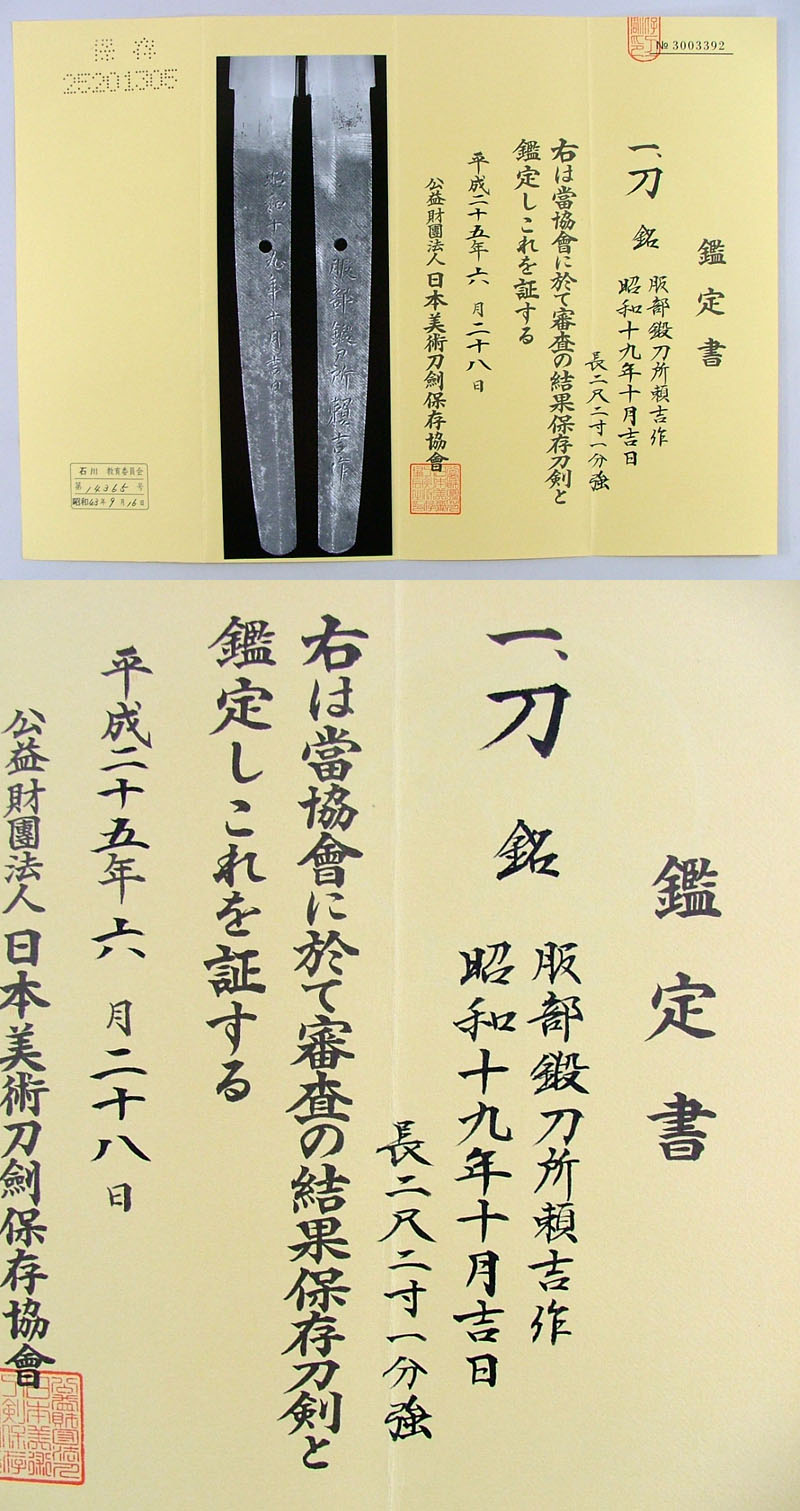 № 3003392
鑑定書
一、刀 銘 服部鍛刀所頼吉作
昭和十九年十月吉日
長二尺二寸一分強
右は當協會に於て審査の結果保存刀剣と
鑑定しこれを証する
平成二十五年六月二十八日
公益財團法人日本美術刀劍保存協會
服部鍛刀所頼吉作
昭和十九年十月吉日
保存
25201305
石川 教育委員会
第 14365 号
昭和63年9月16日
鑑定書
一、刀 銘 服部鍛刀所頼吉作
昭和十九年十月吉日
長二尺二寸一分強
右は當協會に於て審査の結果保存刀剣と
鑑定しこれを証する
平成二十五年六月二十八日
公益財團法人日本美術刀劍保存協會